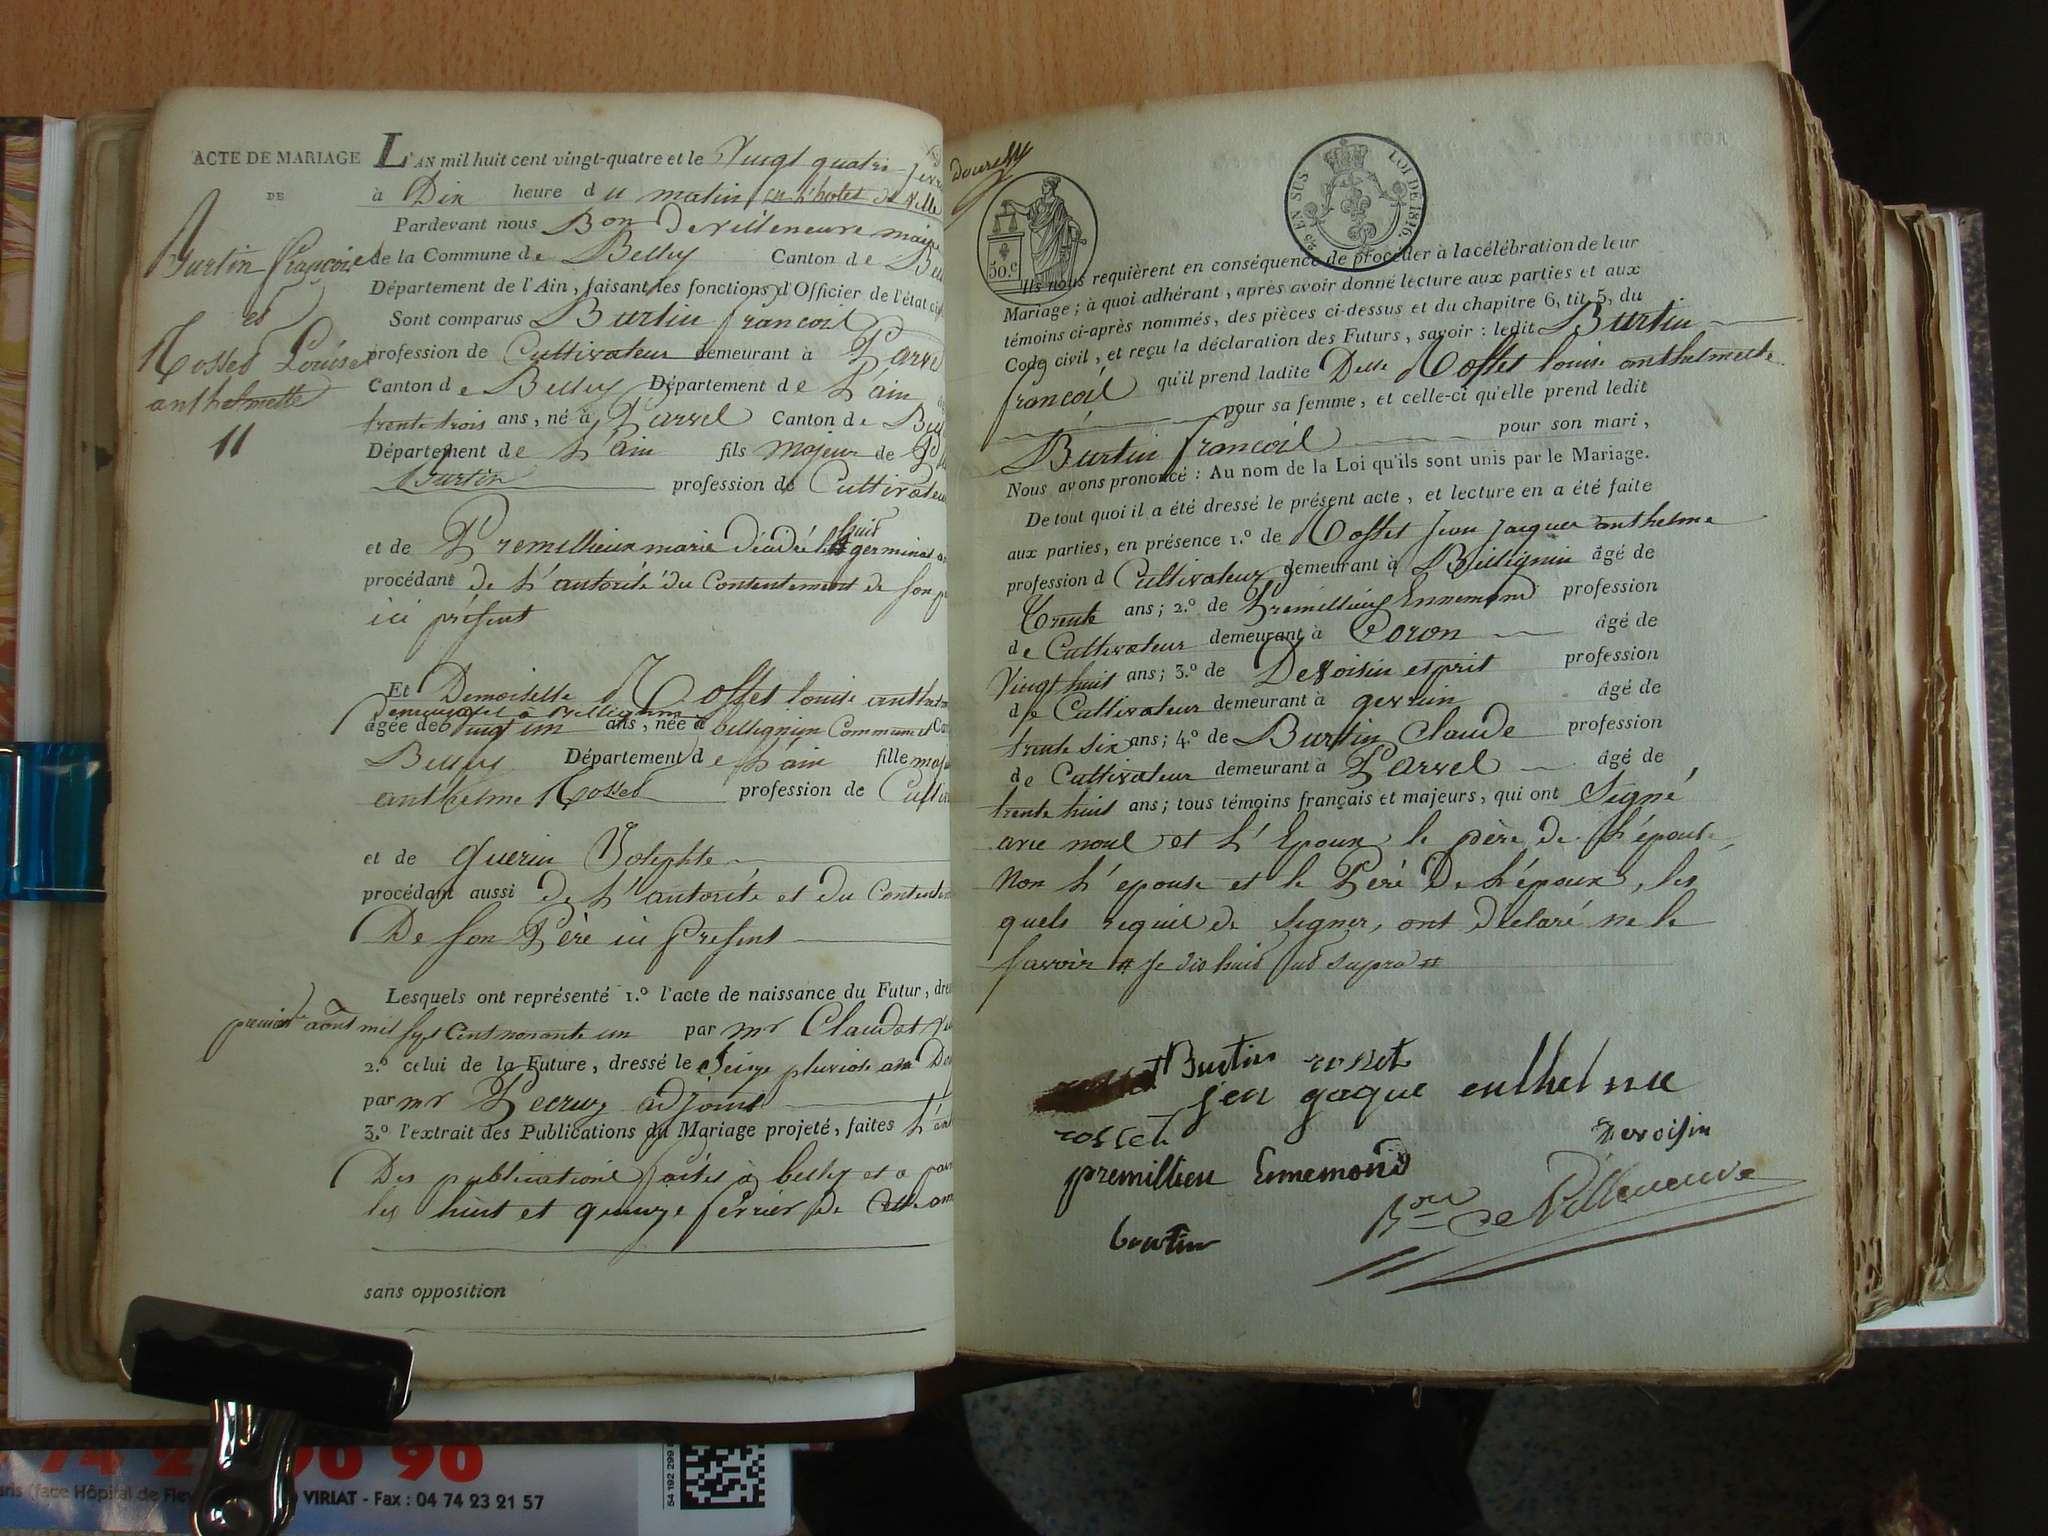 ACTE DE MARIAGE
DE
Burtin françois
et
Rosset Louise
anthelmette
11
L'AN mil huit cent vingt-quatre et le Vingt quatre fevr
à Dix heure du matin en l'hotel de ville
Pardevant nous Bon de villeneuve maire
de la Commune de Belley Canton de Bell
Département de l'Ain, faisant les fonctions d'Officier de l'état civ
Sont comparus Burtin francois
profession de Cultivateur demeurant à Parve
Canton de Belley Département de L'ain
trente trois ans, né à Parvel Canton de Bell
Département de L'ain fils majeur de
Burtin profession de Cultivateur
et de Premillieux marie décédée le huit germinal an
procédant de L'autorité du Contentement de son p
ici présent
Et Demoiselle Rosset louise anthelm
demeurant à Billignin
agée de Vingt un ans, née à billignin Commune et Can
Belley Département de L'ain fille maj
anthelme Rosset profession de Cultiv
et de Guerin Josephte
procédant aussi de L'autorité et du Contente
De son Père ici present
Lesquels ont représenté 1.º l'acte de naissance du Futur, dre
premier août mil sept cent nonante un par mr Claudot
2.º celui de la Future, dressé le Seize pluviose an
par mr Pecruz adjoint
3.º l'extrait des Publications du Mariage projeté, faites
Des publications faites à belley et a par
les huit et quinze février de cette ann
sans opposition
30.c
2/0 EN SUS LOI DE 1816.
Ils nous requièrent en conséquence de procéder à la célébration de leur
Mariage; à quoi adhérant, après avoir donné lecture aux parties et aux
témoins ci-après nommés, des pièces ci-dessus et du chapitre 6, tit. 5, du
Code civil, et reçu la déclaration des Futurs, savoir: ledit Burtin
francois qu'il prend ladite Delle Rosset louise anthelmette
pour sa femme, et celle-ci qu'elle prend ledit
Burtin francois pour son mari,
Nous avons prononcé: Au nom de la Loi qu'ils sont unis par le Mariage.
De tout quoi il a été dressé le présent acte, et lecture en a été faite
aux parties, en présence 1.º de Rosset Jean Jacques anthelme
profession d Cultivateur demeurant à Billignin âgé de
Trente ans; 2.º de Premillieux Ennemond profession
de Cultivateur demeurant à Coron âgé de
Vingt huit ans; 3.º de Devoisin esprit profession
de Cultivateur demeurant à gevrin âgé de
trente six ans; 4.º de Burtin Claude profession
de Cultivateur demeurant à Parvel âgé de
trente huit ans; tous témoins français et majeurs, qui ont Signé
avec nous et L'Epoux le père de L'épouse
Non L'epouse et le Père De L'époux, les
quels requis de Signer, ont déclaré ne le
savoir # je dis huit sus supra #
Burtin rosset
jen gaque enthelme
rosset Devoisin
premillieu Ennemond
Bon de Villeneuve
burtin
74 2 90 96
aris (face Hôpital de Fley VIRIAT - Fax : 04 74 23 21 57
54 192 299